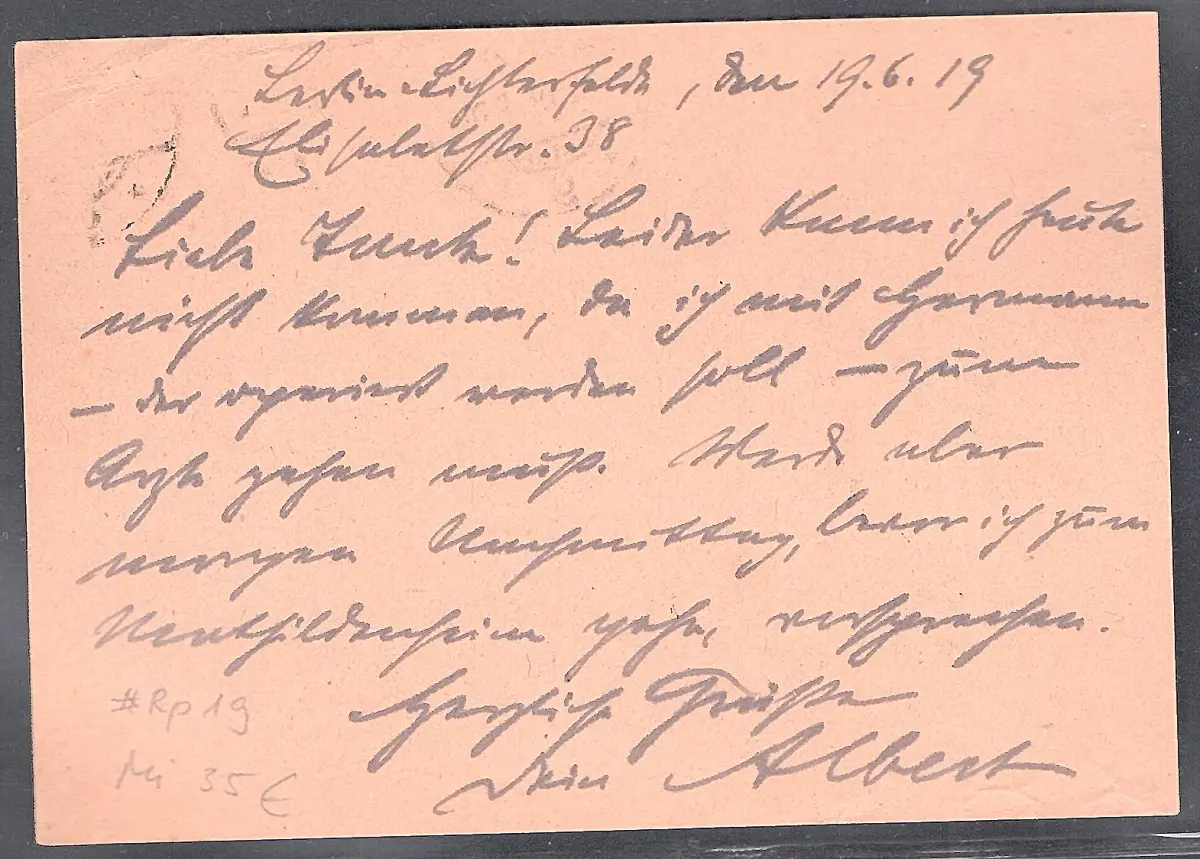 Berlin-Lichterfelde, den 19.6.19
Elisabethstr. 38
Liebe Tante! Leider kann ich heute
nicht kommen, da ich mit Hermann
– der operiert werden soll – zum
Arzte gehen muß. Werde aber
morgen Nachmittag, bevor ich zum
Mathildenheim gehe, vorsprechen.
Herzliche Grüße
Dein Albert
#Rp 19
Mi 35 €